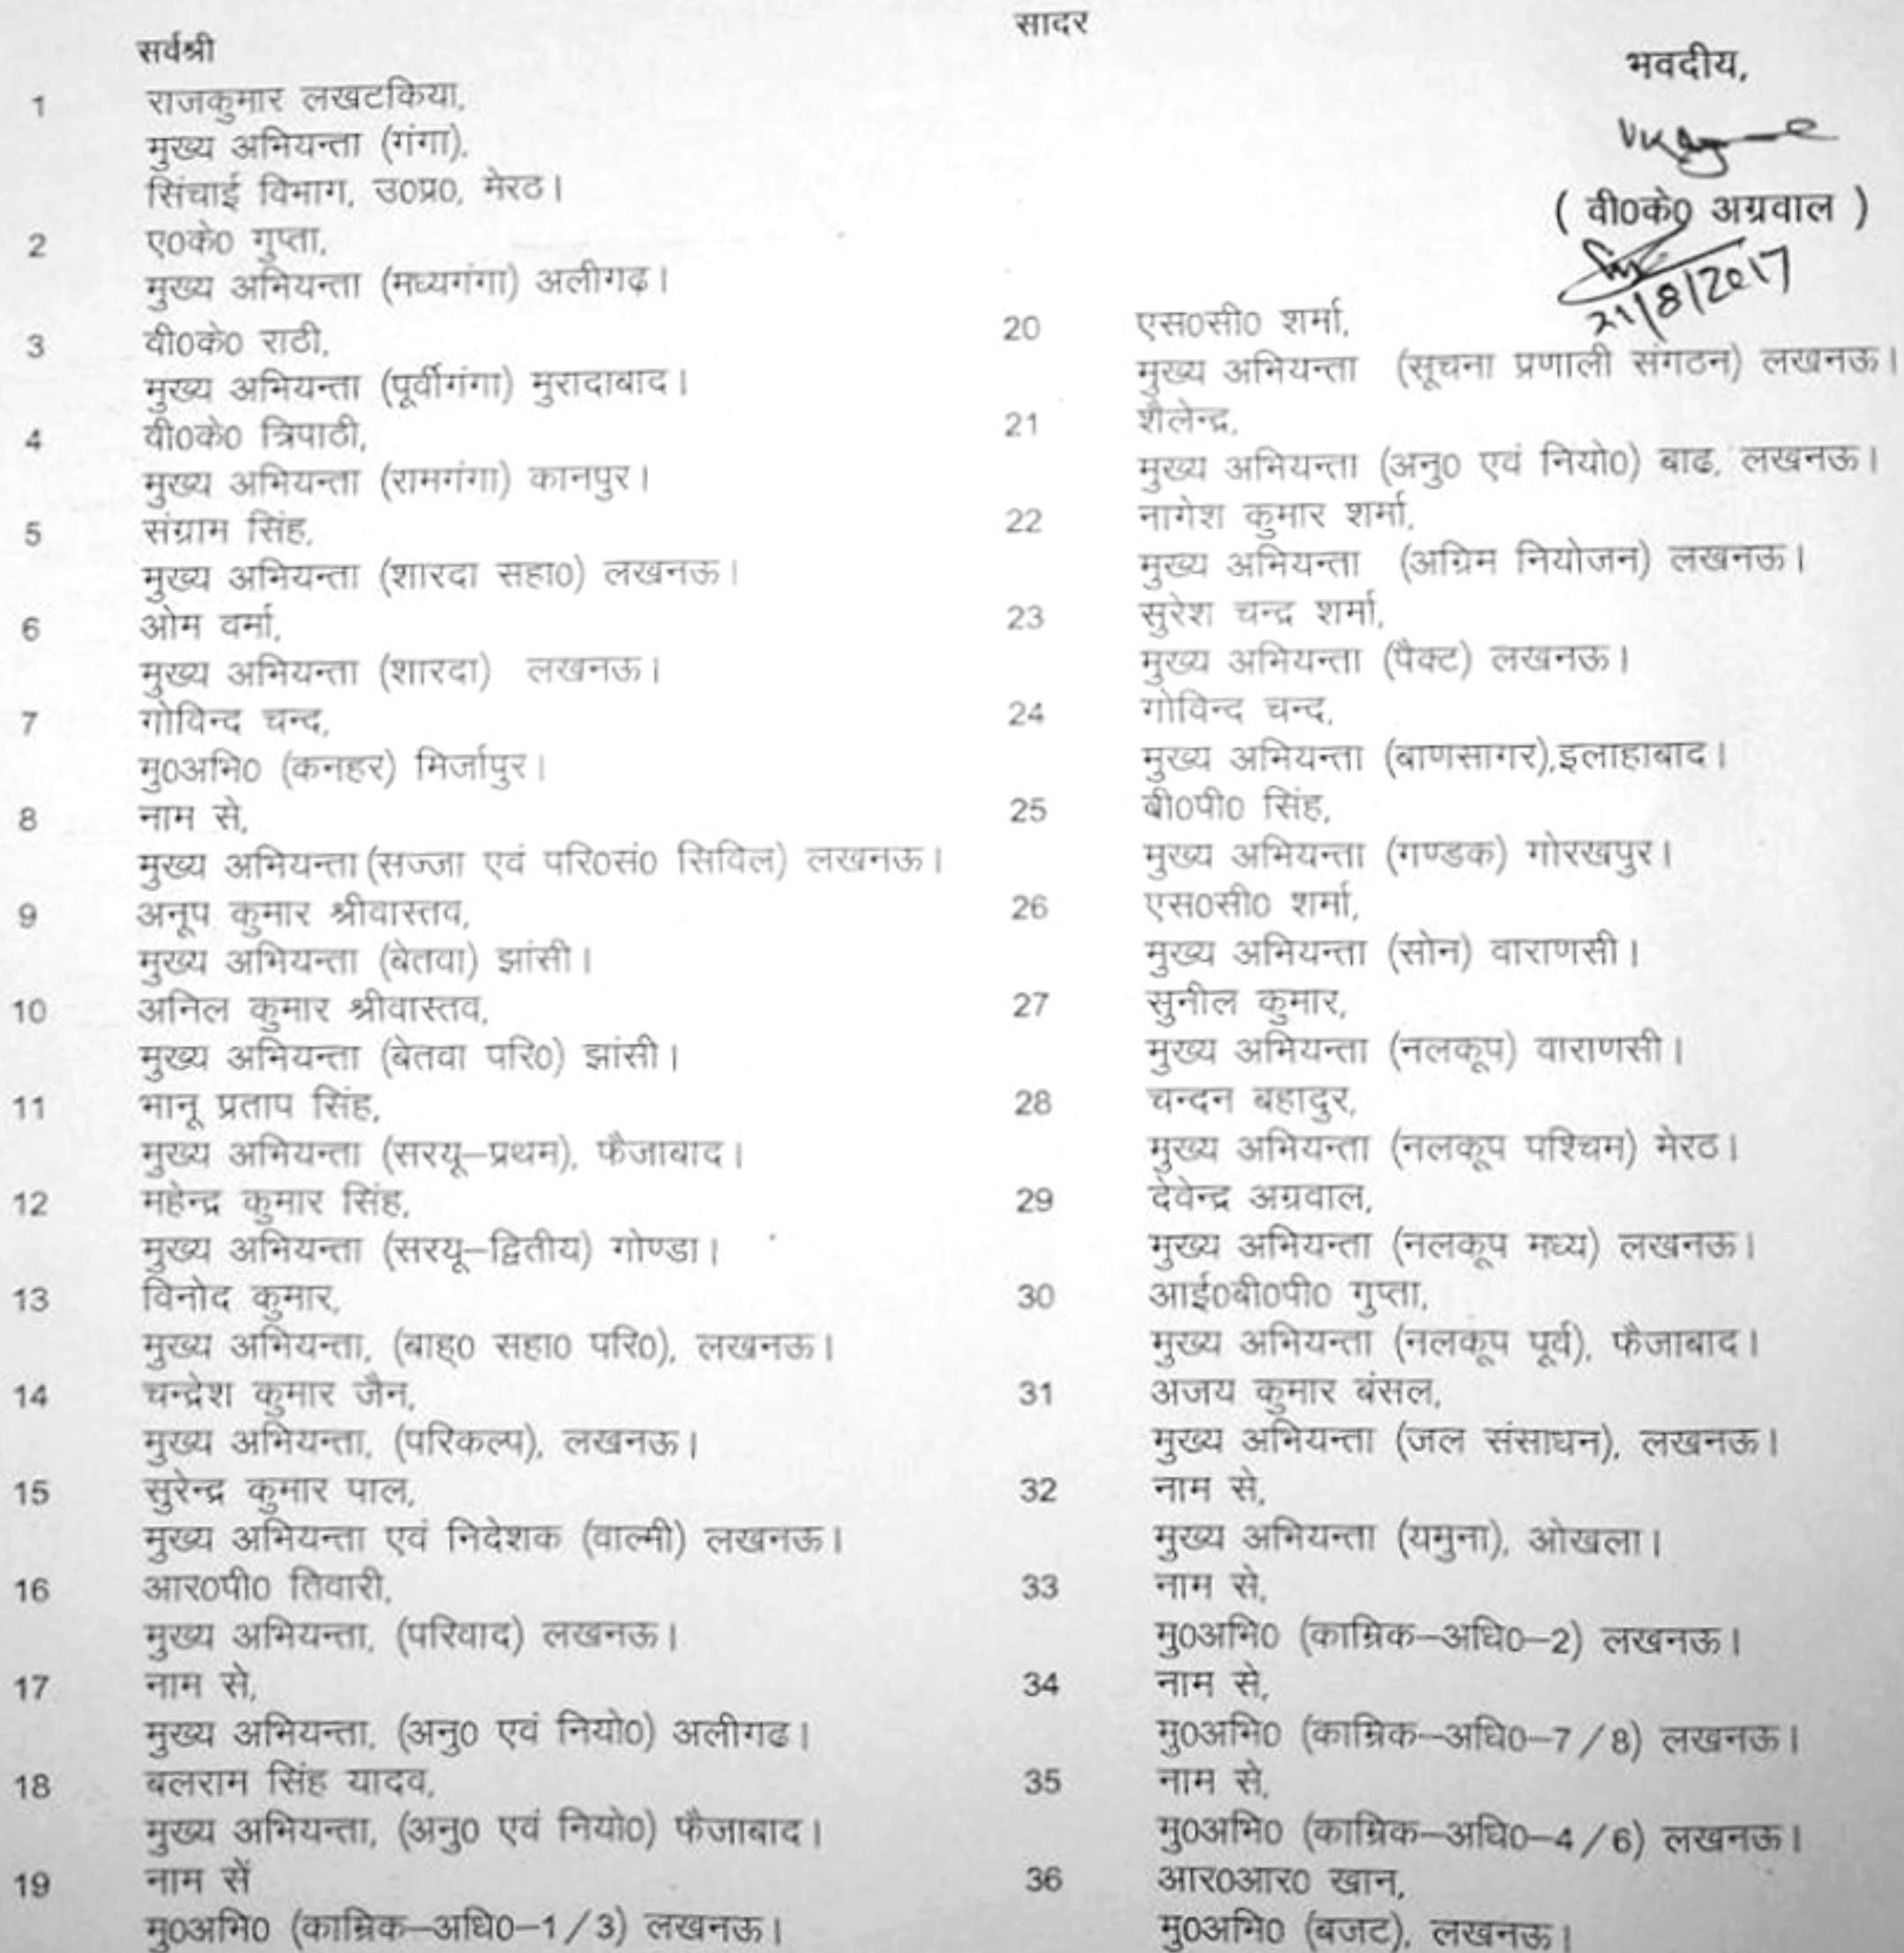 सादर
सर्वश्री
1 राजकुमार लखटकिया,
मुख्य अभियन्ता (गंगा),
सिंचाई विभाग, उ0प्र0, मेरठ।
2 ए0के0 गुप्ता,
मुख्य अभियन्ता (मध्यगंगा) अलीगढ़।
3 वी0के0 राठी,
मुख्य अभियन्ता (पूर्वीगंगा) मुरादाबाद।
4 वी0के0 त्रिपाठी,
मुख्य अभियन्ता (रामगंगा) कानपुर।
5 संग्राम सिंह,
मुख्य अभियन्ता (शारदा सहा0) लखनऊ।
6 ओम वर्मा,
मुख्य अभियन्ता (शारदा) लखनऊ।
7 गोविन्द चन्द,
मु0अभि0 (कनहर) मिर्जापुर।
8 नाम से,
मुख्य अभियन्ता (सज्जा एवं परि0सं0 सिविल) लखनऊ।
9 अनूप कुमार श्रीवास्तव,
मुख्य अभियन्ता (बेतवा) झांसी।
10 अनिल कुमार श्रीवास्तव,
मुख्य अभियन्ता (बेतवा परि0) झांसी।
11 भानू प्रताप सिंह,
मुख्य अभियन्ता (सरयू–प्रथम), फैजाबाद।
12 महेन्द्र कुमार सिंह,
मुख्य अभियन्ता (सरयू–द्वितीय) गोण्डा।
13 विनोद कुमार,
मुख्य अभियन्ता, (बाह्0 सहा0 परि0), लखनऊ।
14 चन्द्रेश कुमार जैन,
मुख्य अभियन्ता, (परिकल्प), लखनऊ।
15 सुरेन्द्र कुमार पाल,
मुख्य अभियन्ता एवं निदेशक (वाल्मी) लखनऊ।
16 आर0पी0 तिवारी,
मुख्य अभियन्ता, (परिवाद) लखनऊ।
17 नाम से,
मुख्य अभियन्ता, (अनु0 एवं नियो0) अलीगढ।
18 बलराम सिंह यादव,
मुख्य अभियन्ता, (अनु0 एवं नियो0) फैजाबाद।
19 नाम सें
मु0अभि0 (काम्रिक–अधि0–1/3) लखनऊ।
भवदीय,
( वी0के0 अग्रवाल )
21/8/2017
20 एस0सी0 शर्मा,
मुख्य अभियन्ता (सूचना प्रणाली संगठन) लखनऊ।
21 शैलेन्द्र,
मुख्य अभियन्ता (अनु0 एवं नियो0) बाढ, लखनऊ।
22 नागेश कुमार शर्मा,
मुख्य अभियन्ता (अग्रिम नियोजन) लखनऊ।
23 सुरेश चन्द्र शर्मा,
मुख्य अभियन्ता (पैक्ट) लखनऊ।
24 गोविन्द चन्द,
मुख्य अभियन्ता (बाणसागर),इलाहाबाद।
25 बी0पी0 सिंह,
मुख्य अभियन्ता (गण्डक) गोरखपुर।
26 एस0सी0 शर्मा,
मुख्य अभियन्ता (सोन) वाराणसी।
27 सुनील कुमार,
मुख्य अभियन्ता (नलकूप) वाराणसी।
28 चन्दन बहादुर,
मुख्य अभियन्ता (नलकूप पश्चिम) मेरठ।
29 देवेन्द्र अग्रवाल,
मुख्य अभियन्ता (नलकूप मध्य) लखनऊ।
30 आई0बी0पी0 गुप्ता,
मुख्य अभियन्ता (नलकूप पूर्व), फैजाबाद।
31 अजय कुमार बंसल,
मुख्य अभियन्ता (जल संसाधन), लखनऊ।
32 नाम से,
मुख्य अभियन्ता (यमुना), ओखला।
33 नाम से,
मु0अभि0 (काम्रिक–अधि0–2) लखनऊ।
34 नाम से,
मु0अभि0 (काम्रिक–अधि0–7/8) लखनऊ।
35 नाम से,
मु0अभि0 (काम्रिक–अधि0–4/6) लखनऊ।
36 आर0आर0 खान,
मु0अभि0 (बजट), लखनऊ।